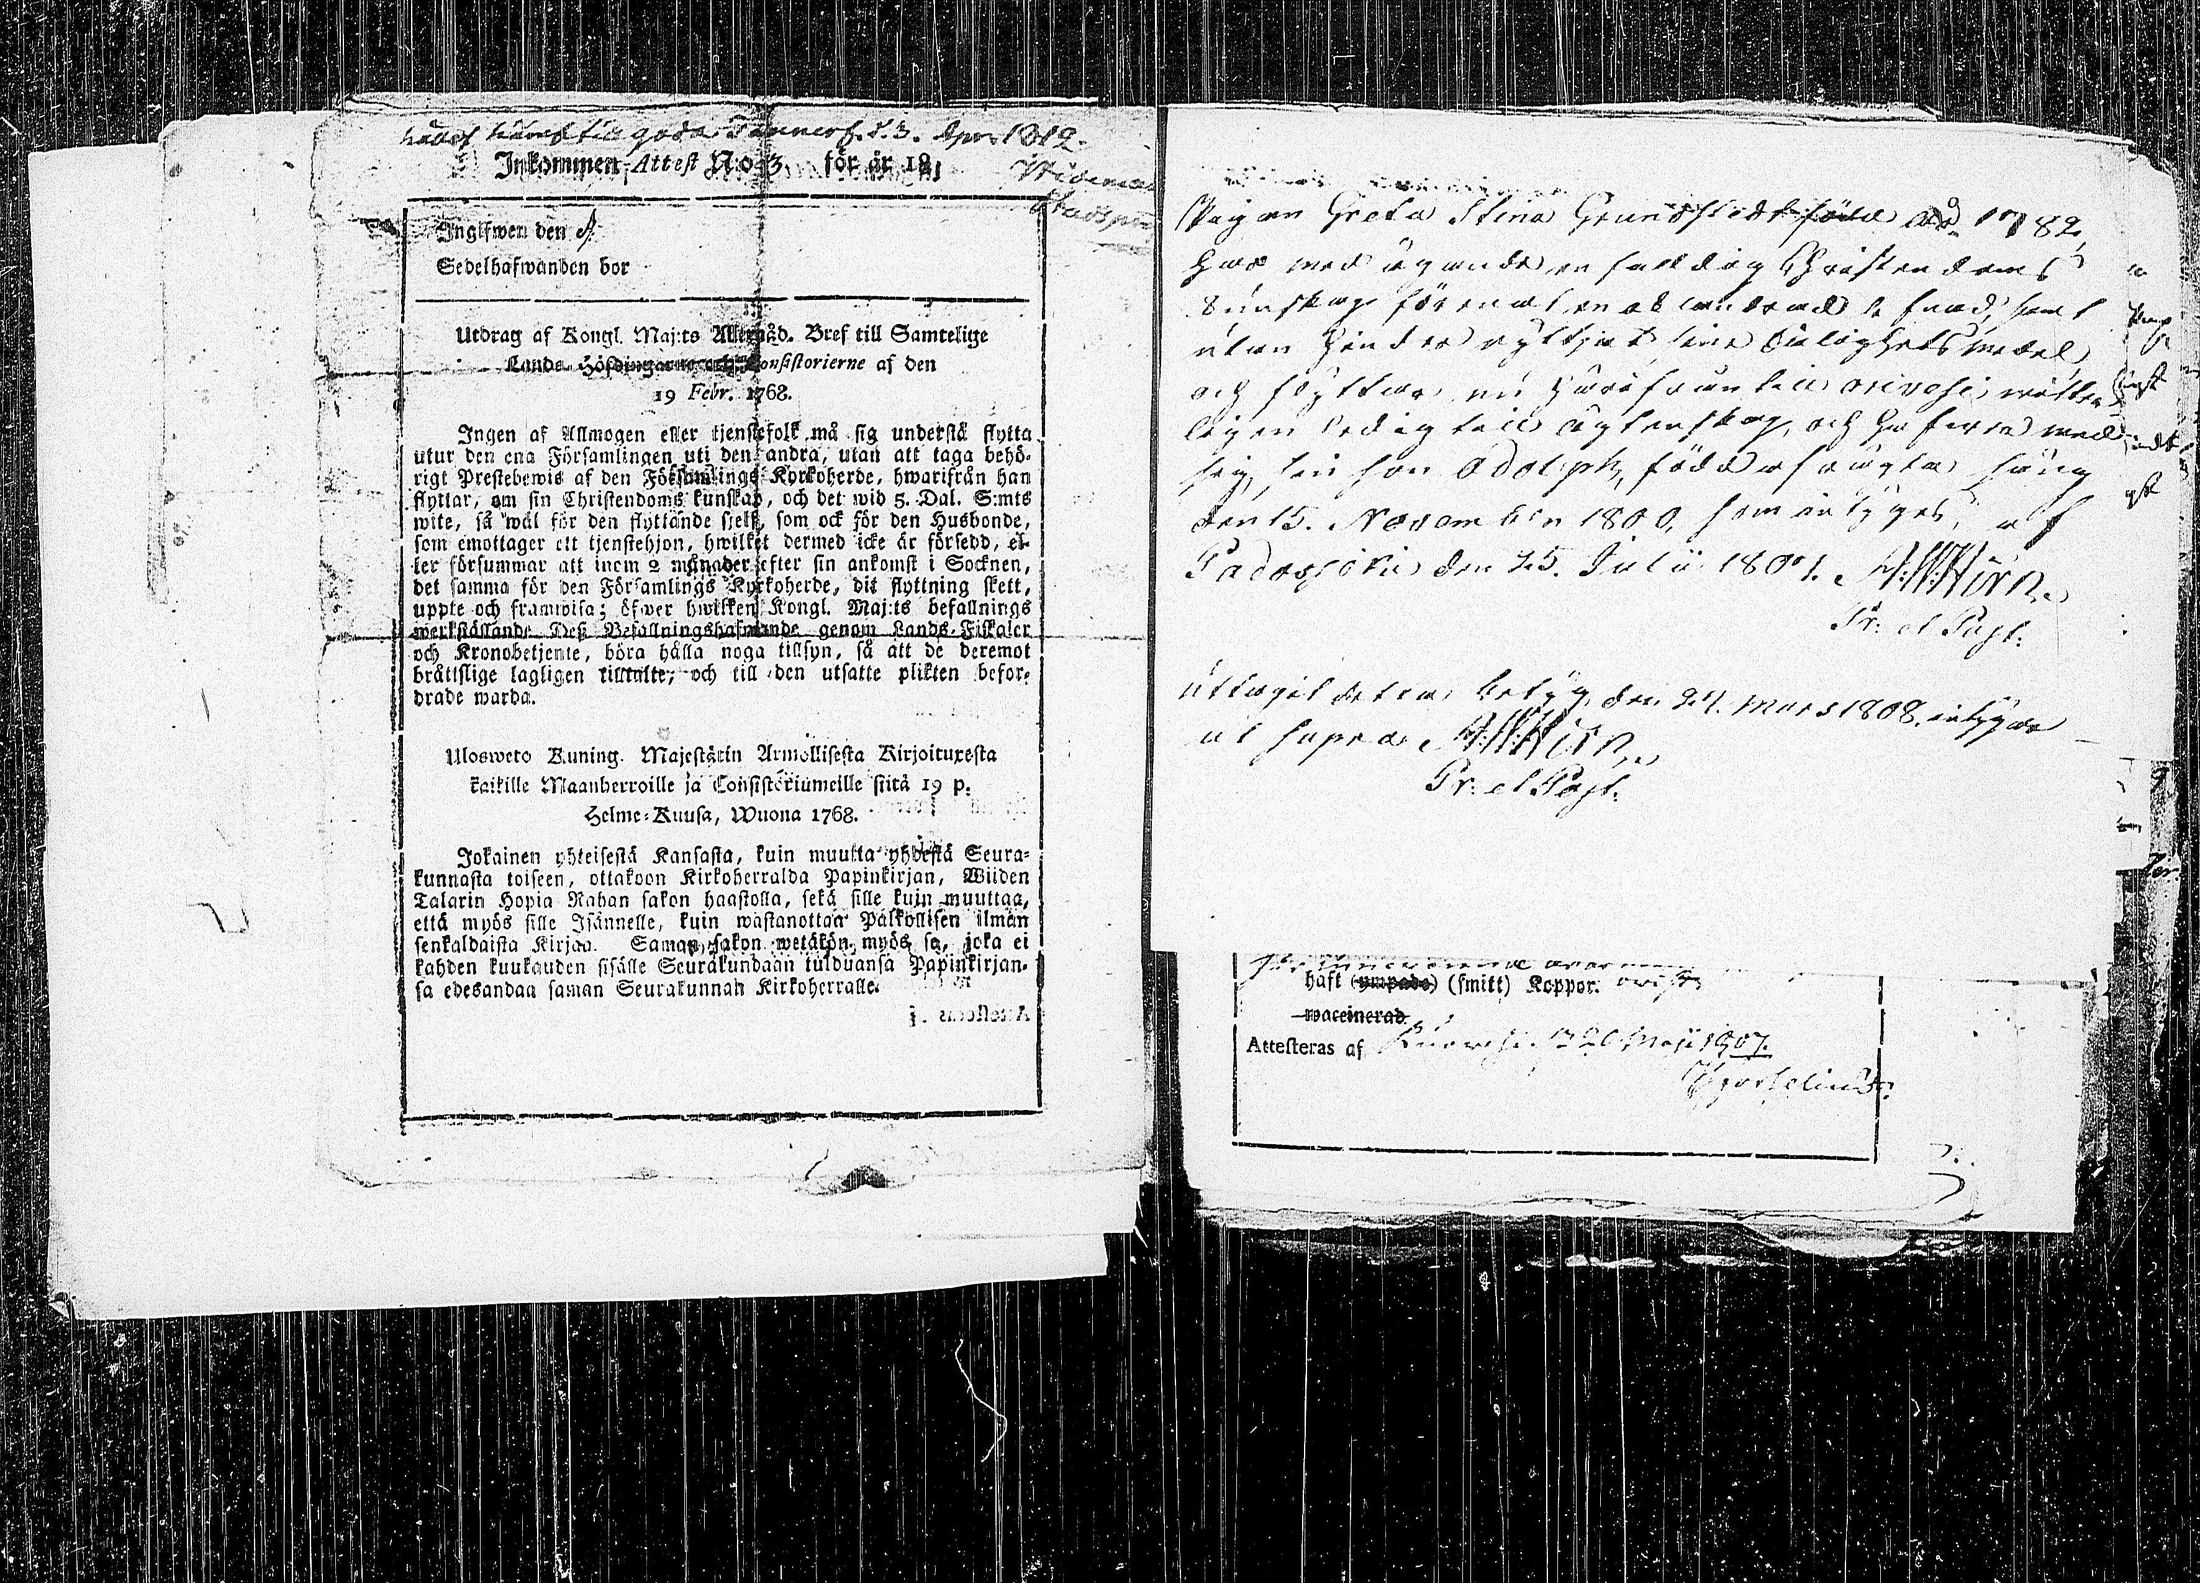 till goda Tammerf. d. 3. Apr. 1812.
Inkommen Attest N:o 3 för år 181
Ingifwen den
Sedelhafwanden bor
Utdrag af Kongl. Maj:ts Allernåd. Bref till Samtelige
Lands-Höfdingarne och Consistorierne af den
19 Febr. 1768.
Ingen af Allmogen eller tjenstefolk må sig understå flytta
utur den ena Församlingen uti den andra, utan att taga behö-
rigt Prestebewis af den Församlings Kyrkoherde, hwarifrån han
flyttar, om sin Christendoms kunskap, och det wid 5. Dal. S:mts
wite, så wäl för den flyttande sjelf, som ock för den Husbonde,
som emottager ett tjenstehjon, hwilket dermed icke är försedd, el-
ler försummar att inom 2 månader efter sin ankomst i Socknen,
det samma för den Församlings Kyrkoherde, dit flyttning skett,
uppte och framwisa; öfwer hwilken Kongl. Maj:ts befallnings
werkställande Deß Befallningshafwande genom Lands-Fiskaler
och Kronobetjente, böra hålla noga tillsyn, så att de deremot
bråttslige lagligen tilltalte, och till den utsatte plikten befor-
drade warda.
Ulosweto Kuning. Majestätin Armollisesta Kirjoituxesta
kaikille Maanherroille ja Consistoriumeille siitä 19 p.
Helme-Kuusa, Wuona 1768.
Jokainen yhteisestä Kansasta, kuin muutta yhdestä Seura-
kunnasta toiseen, ottakoon Kirkoherralda Papinkirjan, Wiiden
Talarin Hopia Rahan sakon haastolla, sekä sille kuin muuttaa,
että myös sille Isännelle, kuin wastanottaa Palkollisen ilman
senkaldaista Kirjaa. Saman sakon wetäkön myös se, joka ei
kahden kuukauden sisälle Seurakundaan tulduansa Papinkirjan-
sa edesandaa saman Seurakunnan Kirkoherralle.
Pigan Greta Stina Grundstedt född år 1782,
har med ägande enfaldig Christendoms
kunskap förenat en oklandrad fräd, samt
utan hinder nyttjat sine Salighetsmedel,
och flyttar nu härifrån till Orivesi, witter-
ligen ledig till ägtenskap, och för med
sig sin son Adolph, född af oägta säng
den 15. November 1800, som intygas, af
Padasjoki den 25. Julii 1801. A:W:Hörn.
Pr: et Past:
Uttagit detta betyg den 24. Mars 1808. intygar
ut supra A:W:Hörn.
Pr: et Past:
haft (ympade) (smitt) Koppor.
waceinerad.
Attesteras af Maji 1807.